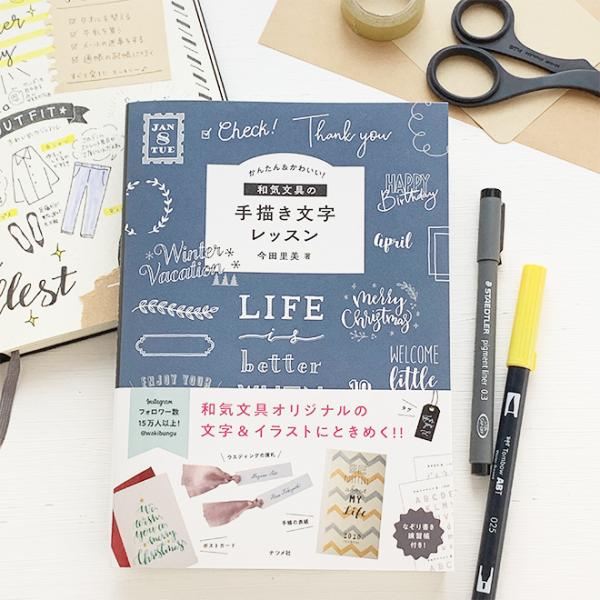 タオルを替える
OUTFIT
llest
JAN
8
TUE
Check!
Thank you
HAPPY
Birthday
かんたん&かわいい!
和気文具の
手描き文字
レッスン
今田里美 著
April
Winter
Vacation
LIFE
is
better
WHEN
Merry
Christmas
WELCOME
little
ENJOY YOUR
Instagram
フォロワー数
15万人以上!
@wakibungu
和気文具オリジナルの
文字&イラストにときめく!!
タグ
ウエディングの席札
手帳の表紙
ポストカード
We
wish
you
a
merry
Christmas
My
LIFE
2020
なぞり書き
練習帳
付き!
ナツメ社
STAEDTLER
pigment liner 0.3
Tombow ABT
025